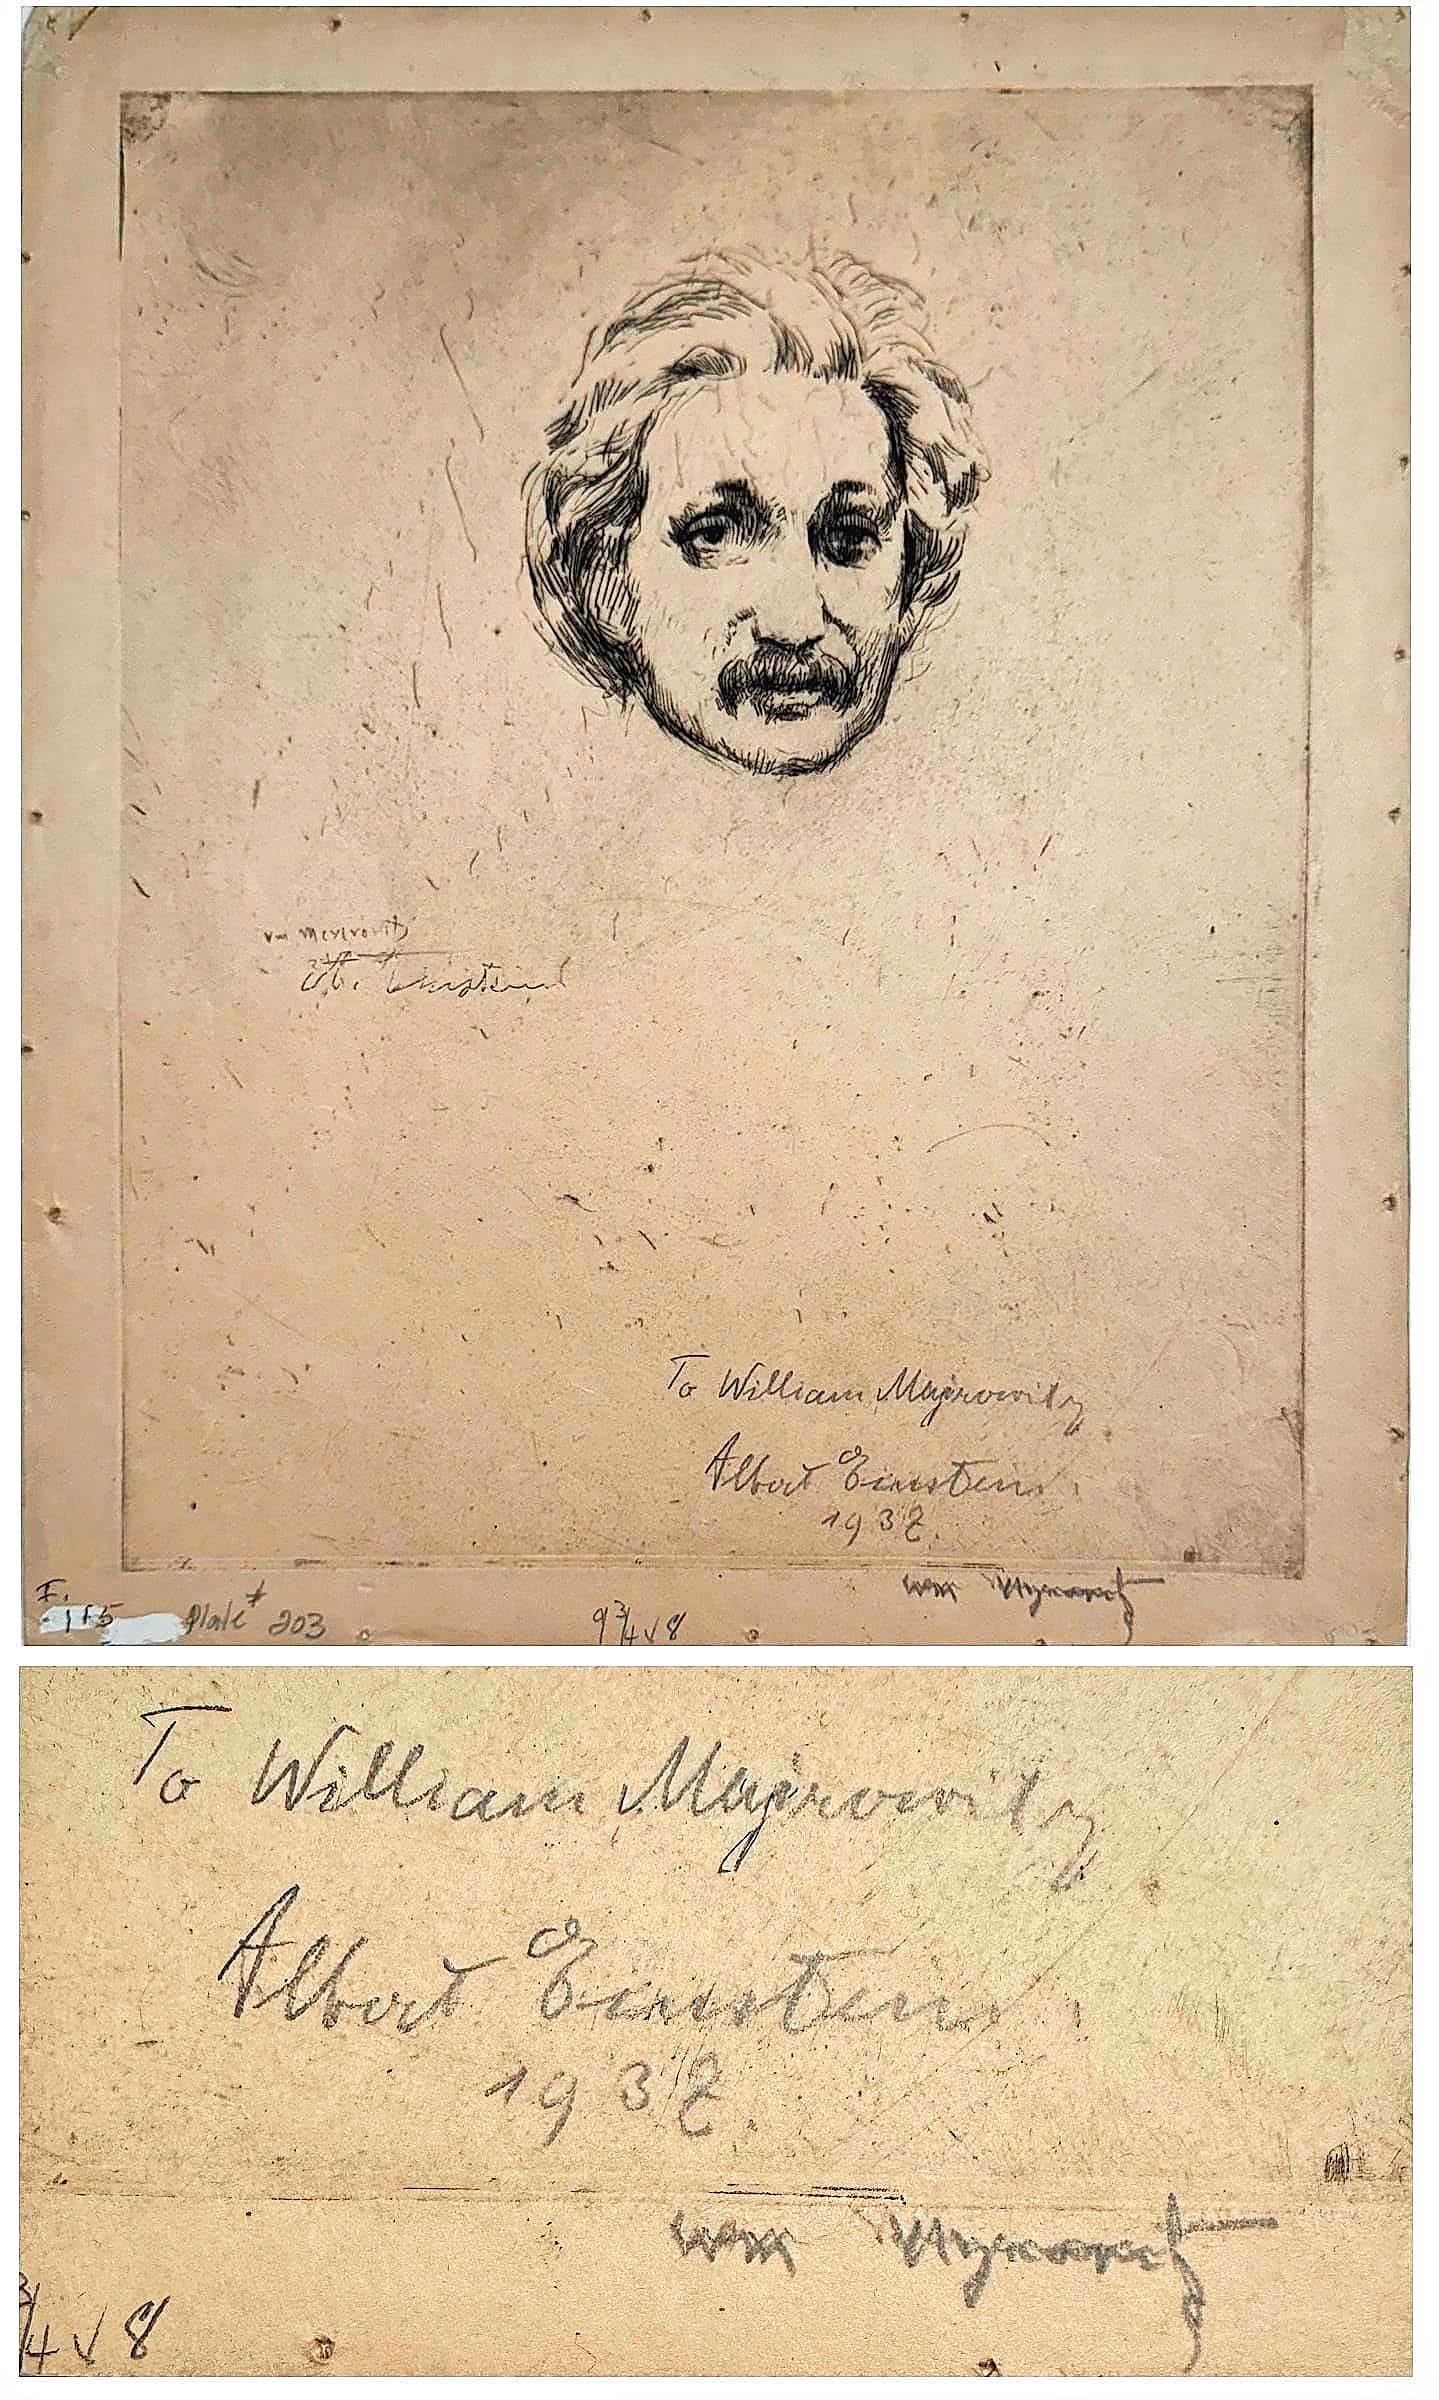 Wm Meyerowitz
A. Einstein
To William Majrowitz
Albert Einstein.
1932.
Wm Meyerowitz
I.
115 Plate # 203
9 3/4 x 8
To William Majrowitz
Albert Einstein.
1932.
Wm Meyerowitz
3/4 x 8